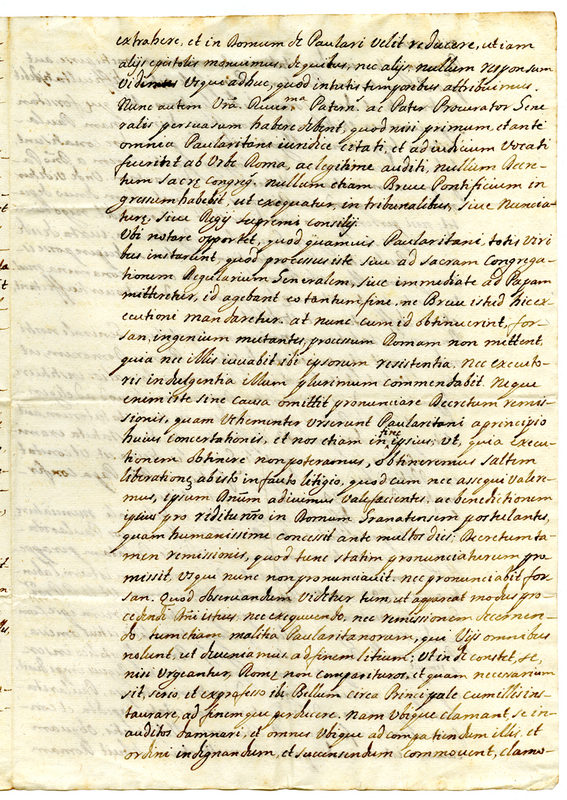 extrahere, et in Domum de Paulari velit reducere, ut iam
alijs epistolis monuimus, de quibus, nec alijs, nullum responsum
vidimus usque adhuc, quod intutis temporibus attribuimus.
Nunc autem Vra. Rever.ma Patern.s ac Pater Procurator Gene
ralis persuasum habere debent, quod nisi primum, et ante
omnia Paularitani iuridice citati, et ad iudicium vocati
fuerint ab Urbe Roma, ac legitime auditi, nullum Decre-
tum sacræ Congreg. nullum etiam Breve Pontificium in
gressum habebit, ut exequatur, in tribunalibus, sive Nuncia-
turæ, sive Regij supremi consilij.
Ubi notare oportet, quod quamvis Paularitani, totis viri
bus instarent, quod processus iste sive ad sacram Congrega-
tionem Regularium Generalem, sive immediate ad Papam
mitteretur, id agebant eo tantum fine, ne Breve istud hic ex
ecutioni mandaretur. at nunc cum id obtinuerint, for-
san, ingenium mutantes, processum Romam non mittent,
quia nec illis iuvabit ibi ipsorum resistentia, nec executo-
ris indulgentia illum plurimum commendabit. Neque
enim iste sine causa omittit pronunciare Decretum remis-
sionis, quam vehementer urserunt Paularitani a principio
huius concertationis, et nos etiam in fine ipsius; ut, quia execu-
tionem obtinere non poteramus, obtineremus saltem
liberationem ab isto infausto litigio, quod cum nec assequi valere-
mus, ipsum Dnum adivimus valefacientes, ac benedictionem
ipsius pro reditu nro in Domum Granatensem postulantes,
quam humanissime concessit ante multos dies; Decretum ta-
men remissionis, quod tunc statim pronunciaturum pro
missit, usque nunc non pronunciavit, nec pronunciabit for
san. Quod observandum videtur tum, ut appareat modus pro-
cedendi Dni istius, nec exequendo, nec remissionem decernen-
do, tum etiam malitia Paularitanorum, qui vijs omnibus
nolunt, ut deveniamus ad finem litium; ut inde constet, se,
nisi urgeantur, Romæ non comparituros, et quam necessarium
sit, serio, et ex professo ibi Bellum circa Principale cum illis ins-
taurare, ad finemque perducere. Nam ubique clamant, se in-
auditos damnari, et omnes ubique ad compatiendum illis, et
ordini indignandum, et succensendum commovent, clamo-